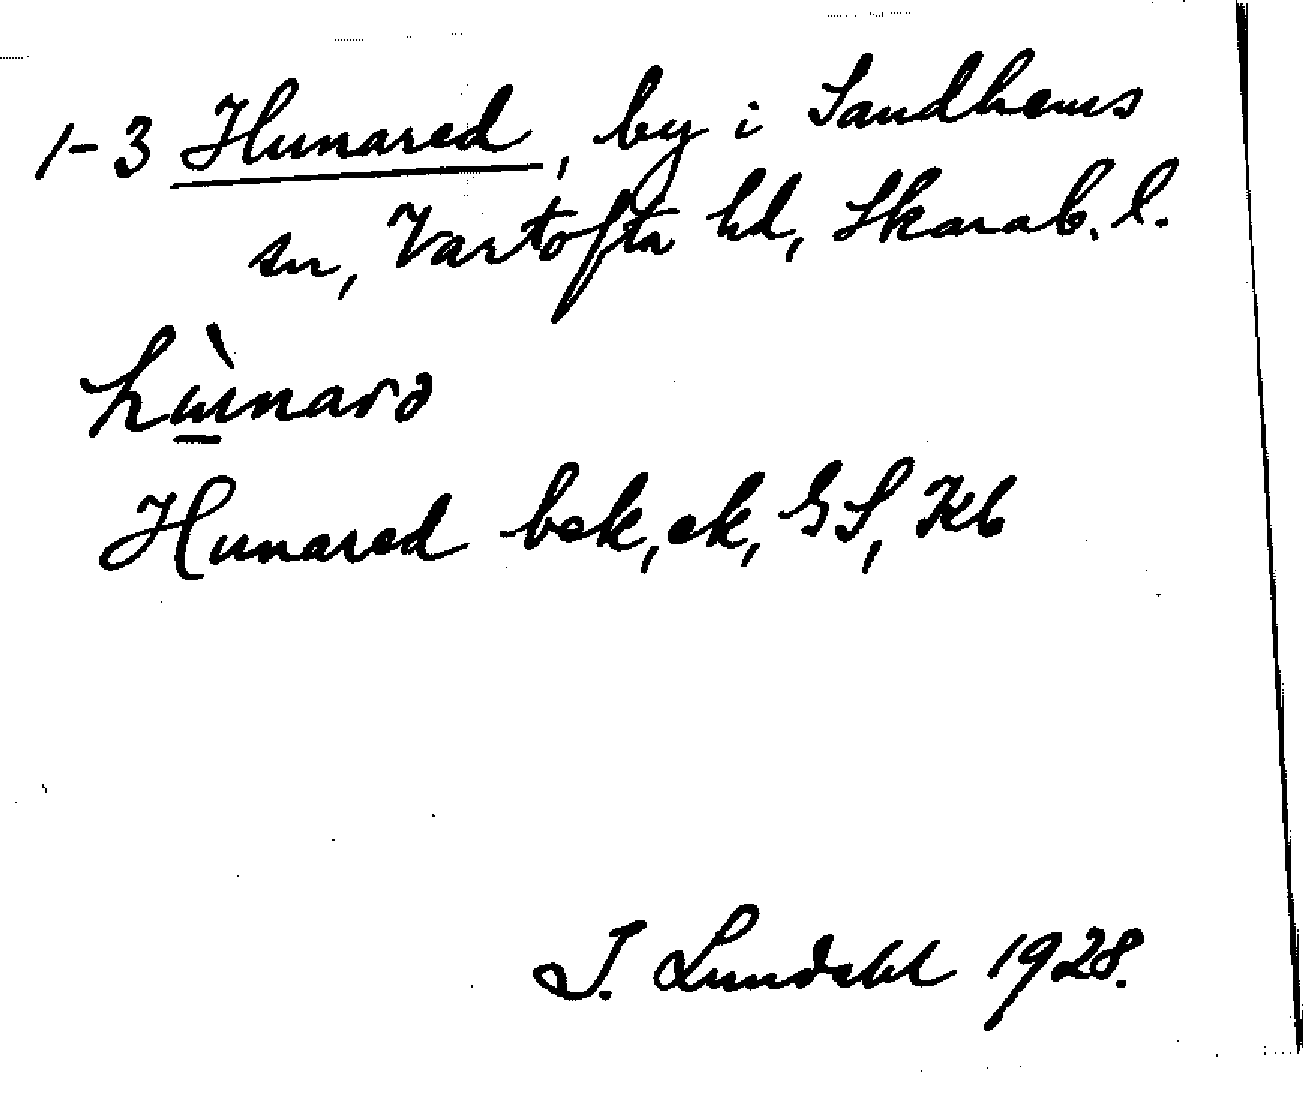 1-3 Hunared, by i Sandhems
sn, Vartofta hd, Skarab. l.
hùnarə
Hunared bek, ek, GS, Kb
I. Lundahl 1928.